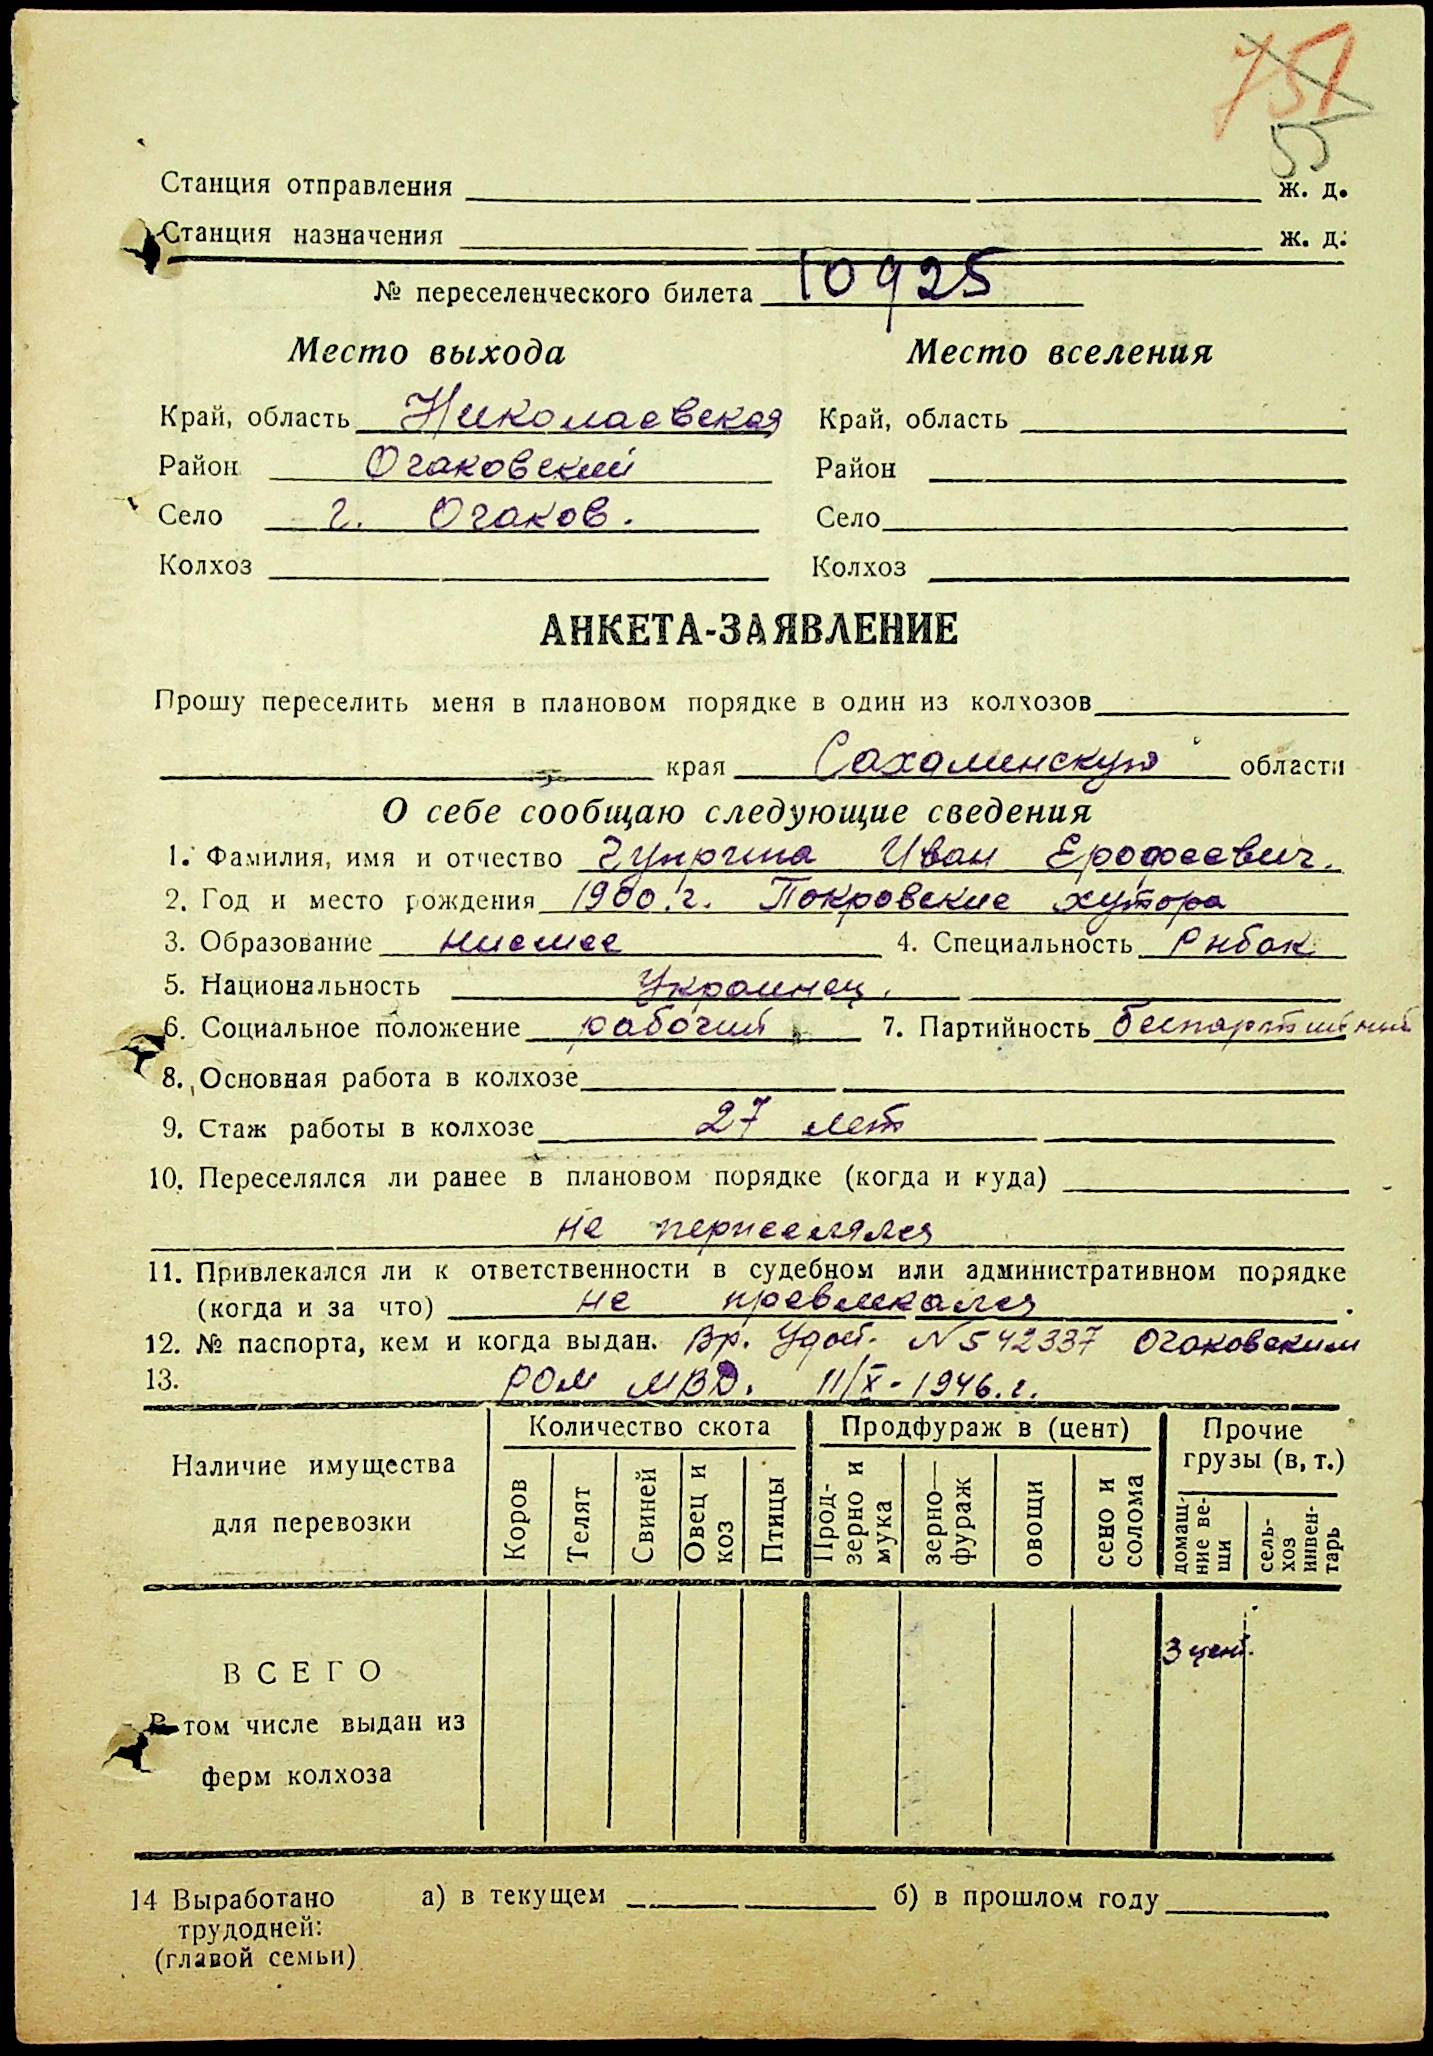 751
55
Станция отправления ж. д.
Станция назначения ж. д.
№ переселенческого билета 10925
Место выхода Место вселения
Край, область Николаевская Край, область
Район Очаковский Район
Село г. Очаков. Село
Колхоз Колхоз
АНКЕТА-ЗАЯВЛЕНИЕ
Прошу переселить меня в плановом порядке в один из колхозов
края Сахалинскую области
О себе сообщаю следующие сведения
1. Фамилия, имя и отчество Чуприна Иван Ерофеевич.
2. Год и место рождения 1900.г. Покровские хутора
3. Образование нисшее 4. Специальность Рыбак
5. Национальность Украинец.
6. Социальное положение рабочий 7. Партийность беспартийный
8. Основная работа в колхозе
9. Стаж работы в колхозе 27 лет
10. Переселялся ли ранее в плановом порядке (когда и куда)
не переселялся
11. Привлекался ли к ответственности в судебном или административном порядке
(когда и за что) не превлекался.
12. № паспорта, кем и когда выдан. Вр. Удост. N 542337 Очаковским
13. РОМ МВД. 11/X-1946.г.
Наличие имущества для перевозки
Количество скота
Продфураж в (цент)
Прочие грузы (в, т.)
Коров
Телят
Свиней
Овец и коз
Птицы
Прод-зерно и мука
зерно—фураж
овощи
сено и солома
домаш-ние ве-щи
сель-хоз инвен-тарь
ВСЕГО 3 цент.
В том числе выдан из
ферм колхоза
14 Выработано а) в текущем б) в прошлом году
трудодней:
(главой семьи)